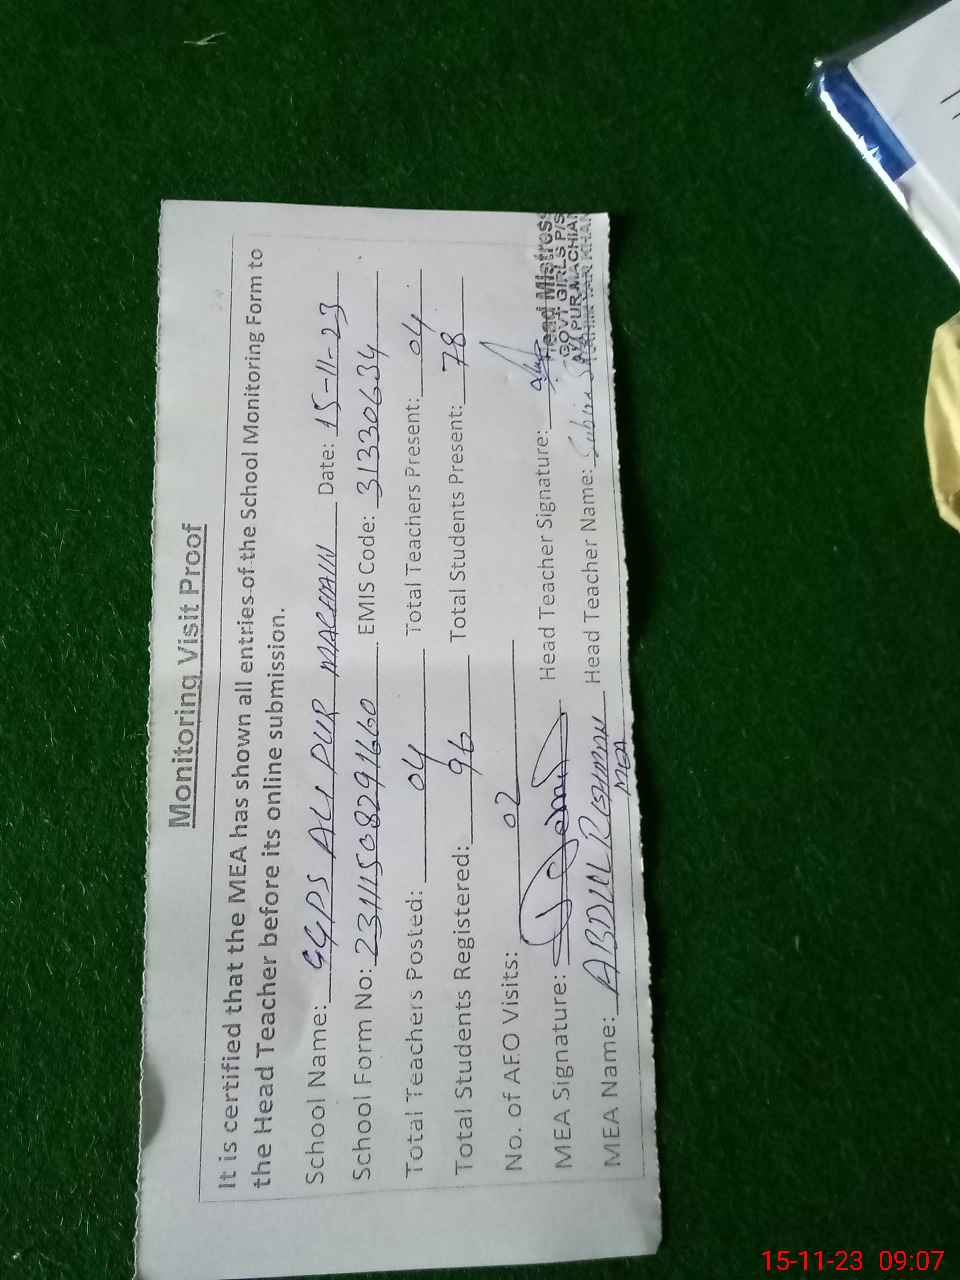 Monitoring Visit Proof
It is certified that the MEA has shown all entries of the School Monitoring Form to
the Head Teacher before its online submission.
School Name: GGPS ALI PUR MACHIAIN Date: 15-11-23
School Form No: 23111508291660 EMIS Code: 31330634
Total Teachers Posted: 04 Total Teachers Present: 04
Total Students Registered: 96 Total Students Present: 78
No. of AEO Visits: 02
MEA Signature: Head Teacher Signature:
Head Mistress
GOVT GIRLS P/S
PUR MACHIAN
YAR KHAN
MEA Name: ABDUL REHMAN Head Teacher Name:
MEA
15-11-23 09:07